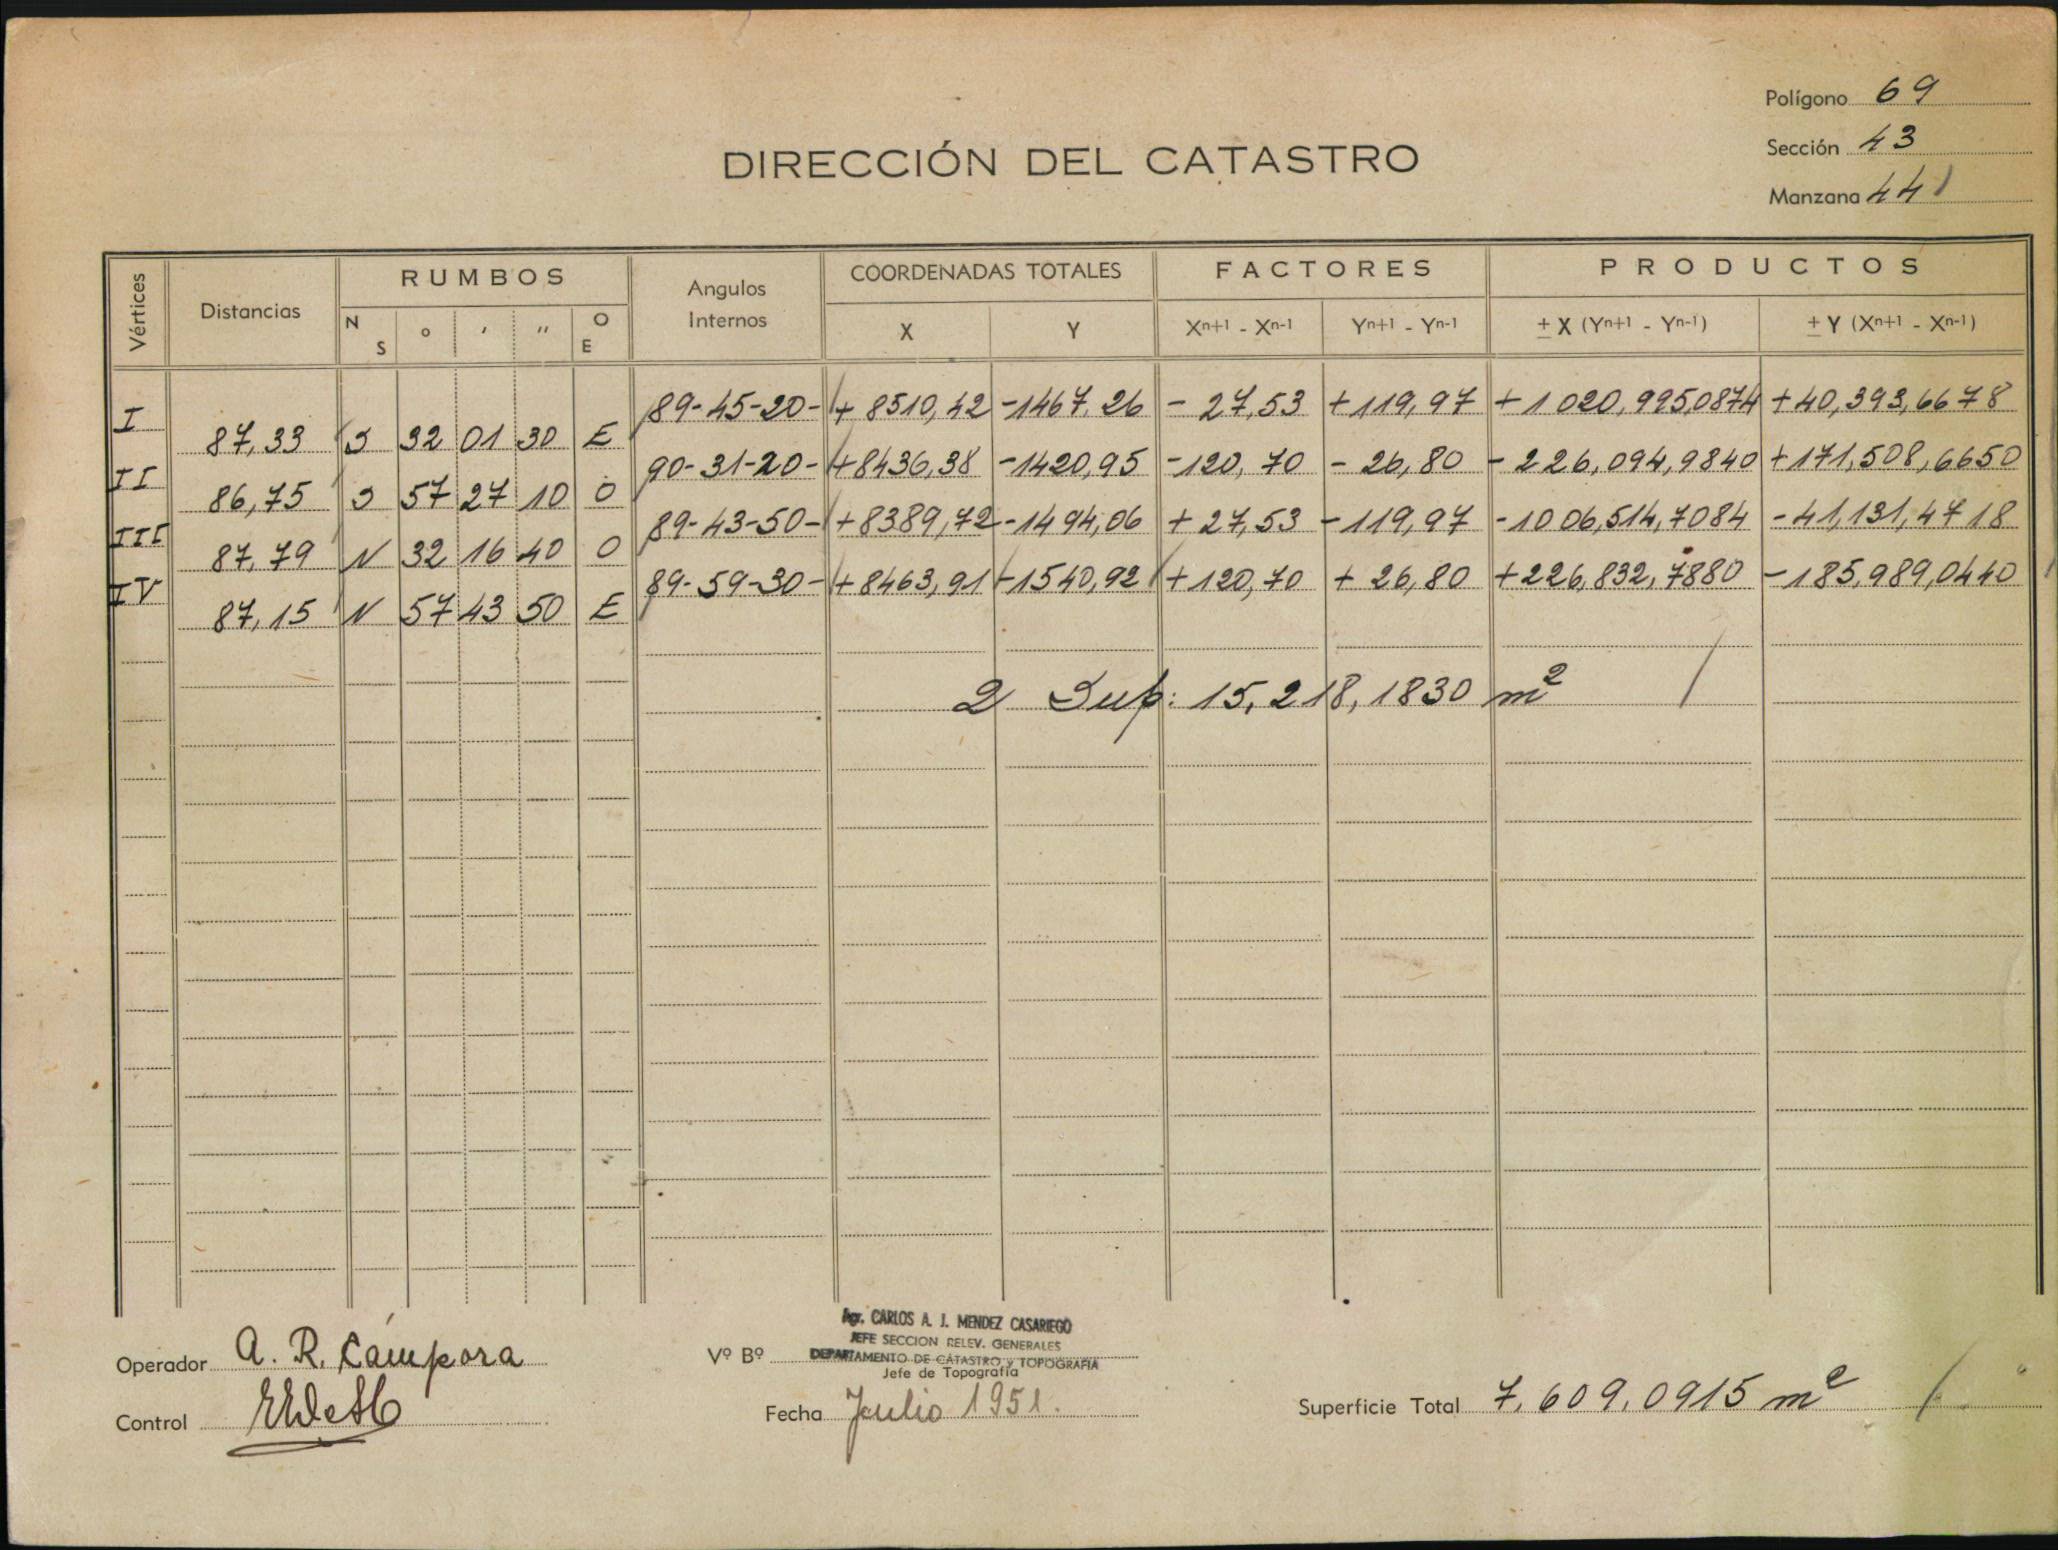 Polígono 69
Sección 43
DIRECCIÓN DEL CATASTRO
Manzana 44
Vértices Distancias RUMBOS Angulos Internos COORDENADAS TOTALES FACTORES PRODUCTOS
N S ° ' '' O E X Y Xn+1 - Xn-1 Yn+1 - Yn-1 ± X (Yn+1 - Yn-1) ± Y (Xn+1 - Xn-1)
I 89-45-20- + 8510,42 -1467,26 - 27,53 +119,97 +1020,995,0874 +40,393,6678
87,33 S 32 01 30 E
II 90-31-20- +8436,38 -1420,95 -120,70 - 26,80 - 226,094,9840 +171,508,6650
86,75 S 57 27 10 O
III 89-43-50- +8389,72 -1494,06 + 27,53 -119,97 -1006,514,7084 -41,131,4718
87,79 N 32 16 40 O
IV 89-59-30- +8463,91 -1540,92 +120,70 + 26,80 +226,832,7880 -185,989,0440
87,15 N 57 43 50 E
2 Sup: 15,218,1830 m²
Agr. CARLOS A. J. MENDEZ CASARIEGO
JEFE SECCION RELEV. GENERALES
DEPARTAMENTO DE CATASTRO y TOPOGRAFIA
Operador A. R. Cámpora Vº Bº
Jefe de Topografía
Control Fecha Julio 1951. Superficie Total 7,609,0915 m²